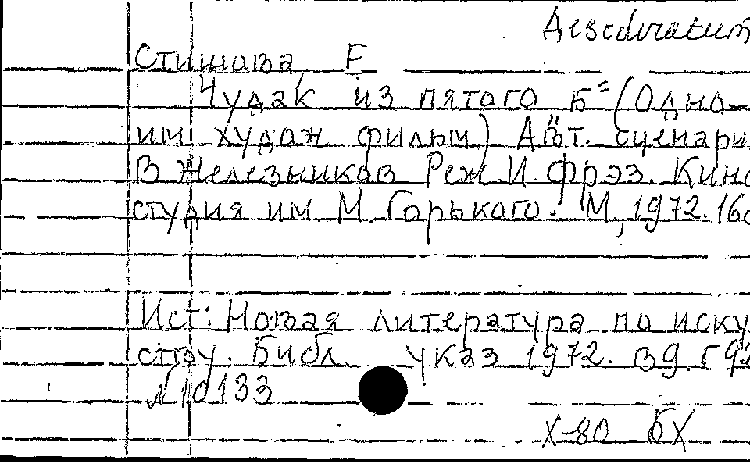 Desideratum
Стишова Е
"Чудак из пятого Б" (Одно-
им худож фильм) Авт. сценари
В Железников Реж. И. Фрэз. Кино
студия им М. Горького. М, 1972. 16с
Ист: Новая литература по иску
ству. Библ. указ 1972.
№10133
X-80 БХ